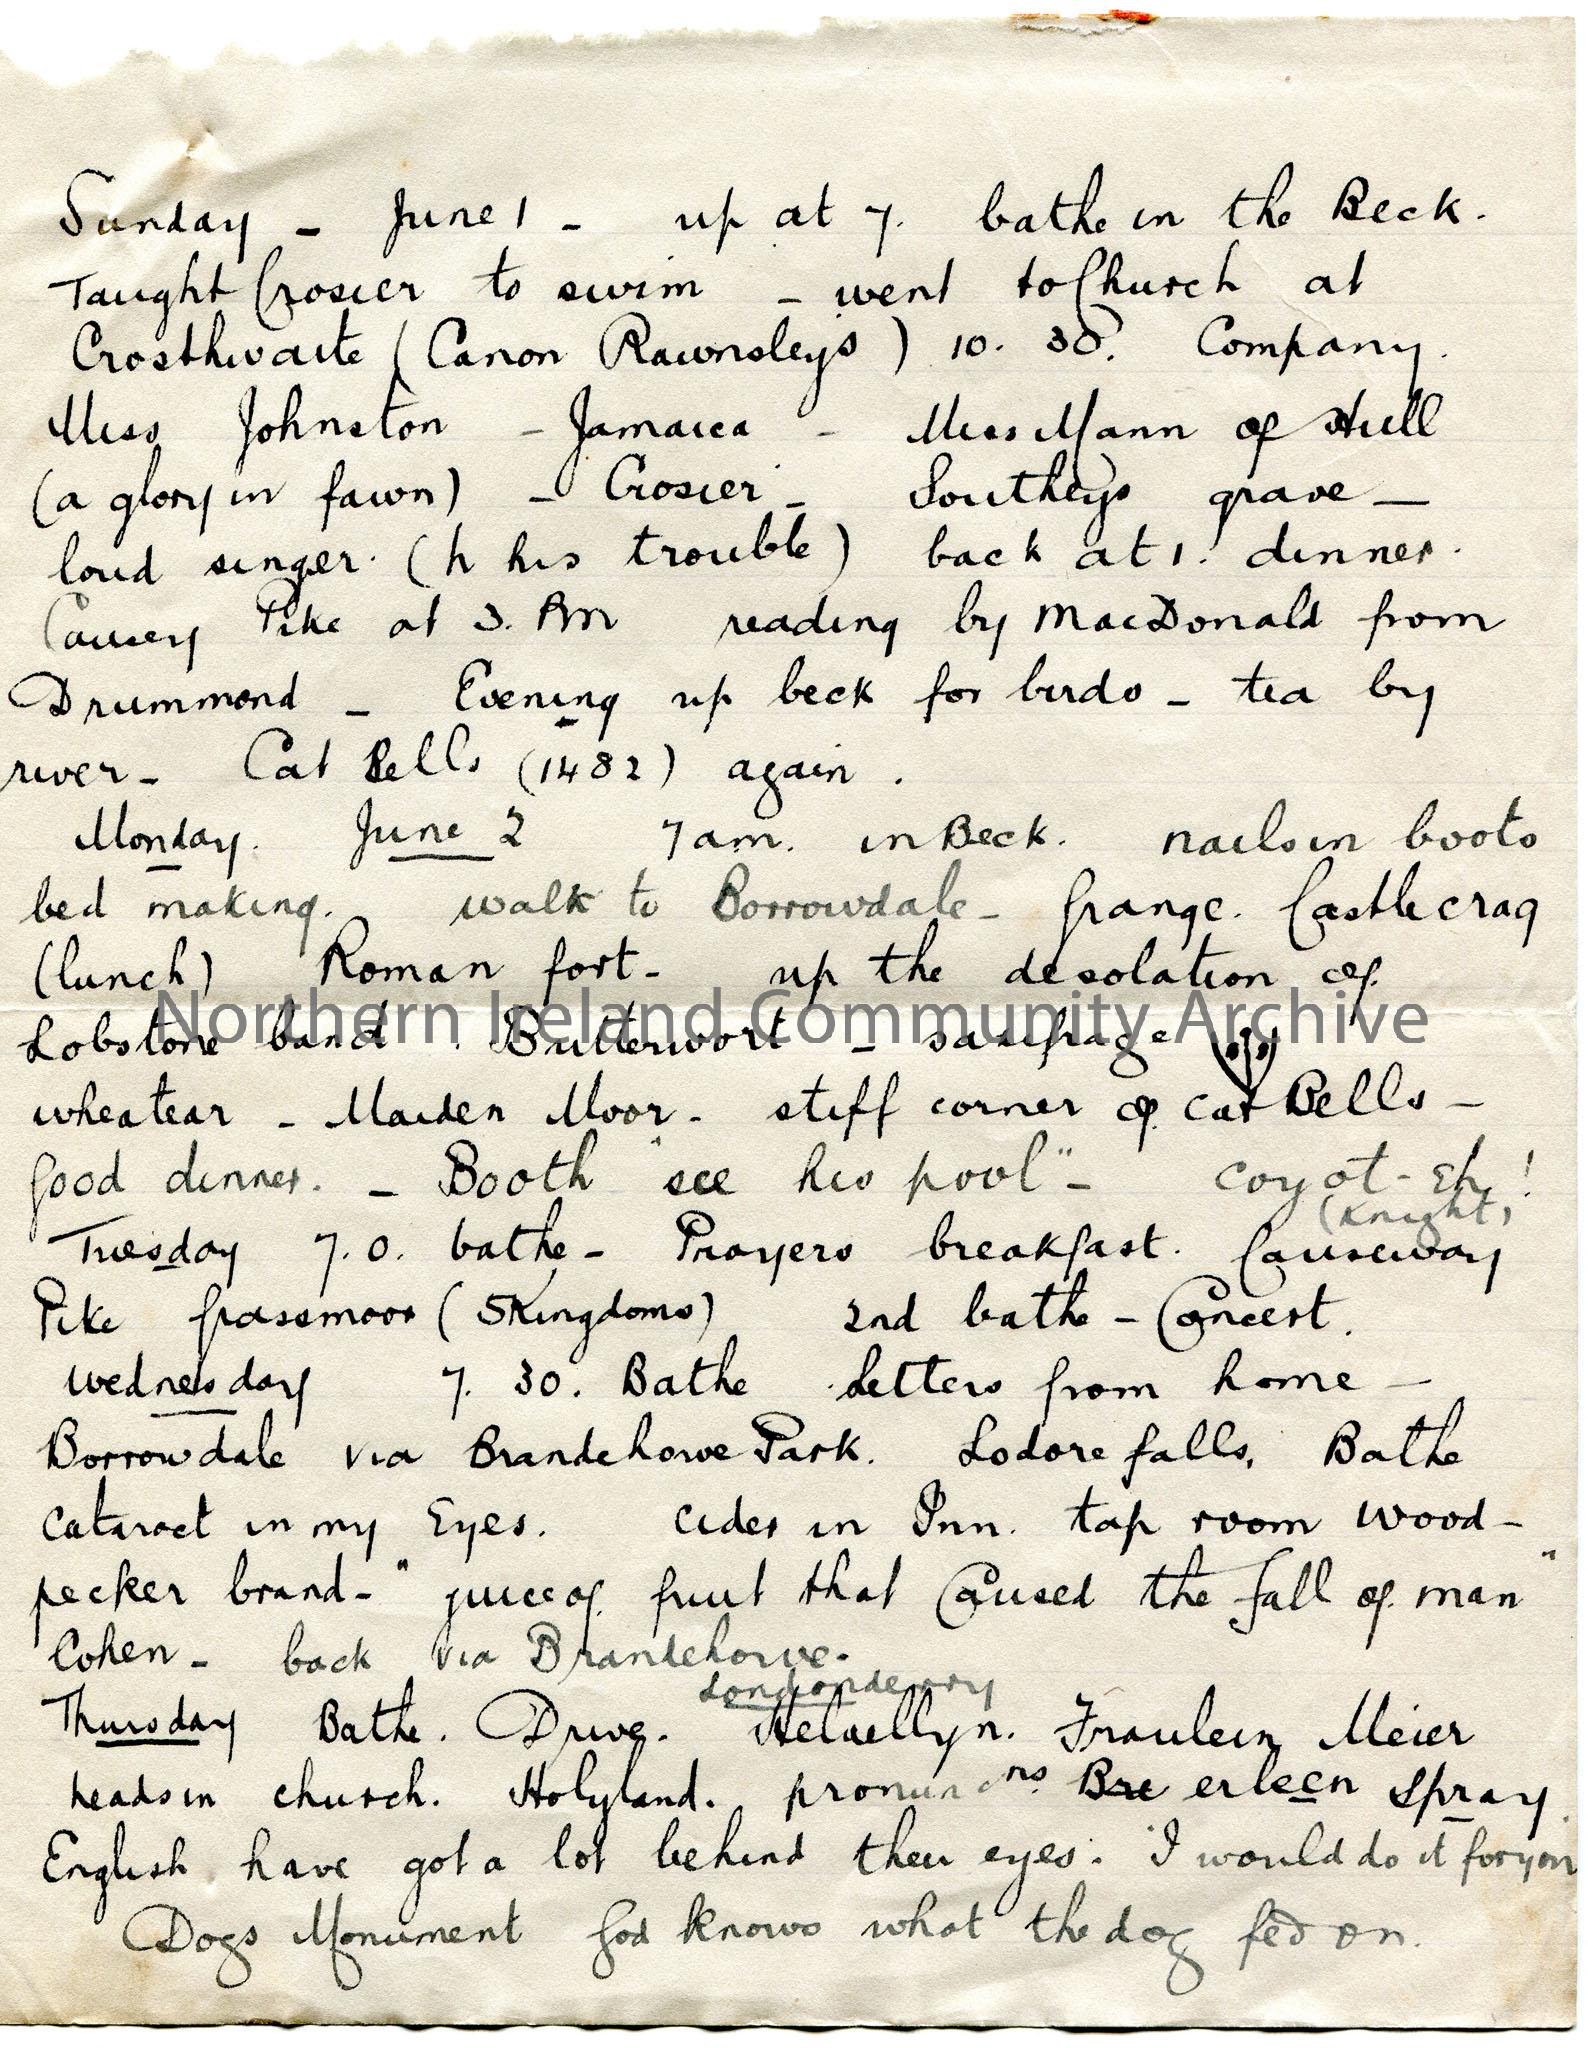 Sunday – June 1 – up at 7. bathe in the Beck.
Taught Crosier to swim – went to Church at
Crosthwaite (Canon Rawnsleys) 10.30. Company.
Miss Johnston – Jamaica – Miss Mann of Hull
(a glory in fawn) – Crosier – Southeys grave –
loud singer. (h his trouble) back at 1. dinner.
Causey Pike at 3. PM reading by MacDonald from
Drummond – Evening up beck for birds – tea by
river – Cat Bells (1482) again.
Monday. June 2 7 am. in Beck. nails in boots
bed making. walk to Borrowdale – Grange. Castle crag
(lunch) Roman fort – up the desolation of
Northern Ireland Community Archive
Lobstone band. Butterwort – saxifrage
wheatear – Maiden Moor – stiff corner of Cat Bells –
Good dinner. – Booth "see his pool" – coyot – Eh!
(Knight)
Tuesday 7.0. bathe – Prayers breakfast. Causeway
Pike Grassmoor (5 Kingdoms) 2nd bathe – Concert.
Wednesday 7.30. Bathe Letters from home –
Borrowdale via Brandehowe Park. Lodore falls, Bathe
cataract in my Eyes. cider in Inn. tap room Wood-
pecker brand – "juice of fruit that Caused the fall of man"
Cohen – back via Brandehowe.
Londonderry
Thursday Bathe. Drive. Helvellyn. Fraulein Meier
heads in church. Holyland. pronuncns Bre erleen spray.
English have got a lot behind their eyes. 'I would do it for you
Dogs Monument God knows what the dog fed on.